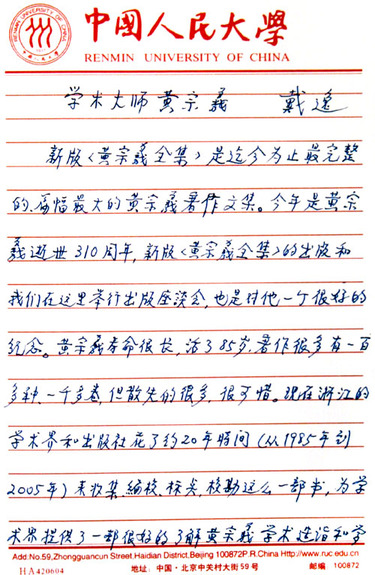 中國人民大學
RENMIN UNIVERSITY OF CHINA
学术大师黄宗羲 戴逸
新版《黄宗羲全集》是迄今为止最完整
的、篇幅最大的黄宗羲著作文集。今年是黄宗
羲逝世310周年,新版《黄宗羲全集》的出版和
我们在这里举行出版座谈会,也是对他一个很好的
纪念。黄宗羲寿命很长,活了85岁,著作很多有一百
多种、一千多卷,但散失的很多,很可惜。现在浙江的
学术界和出版社花了约20年时间(从1985年到
2005年)来收集、编校、标点、校勘这么一部书,为学
术界提供了一部很好的了解黄宗羲学术造诣和学
Add:No.59,Zhongguancun Street,Haidian District,Beijing 100872 P.R.China Http://www.ruc.edu.cn
HA420604 地址:中国·北京中关村大街59号 邮编 100872